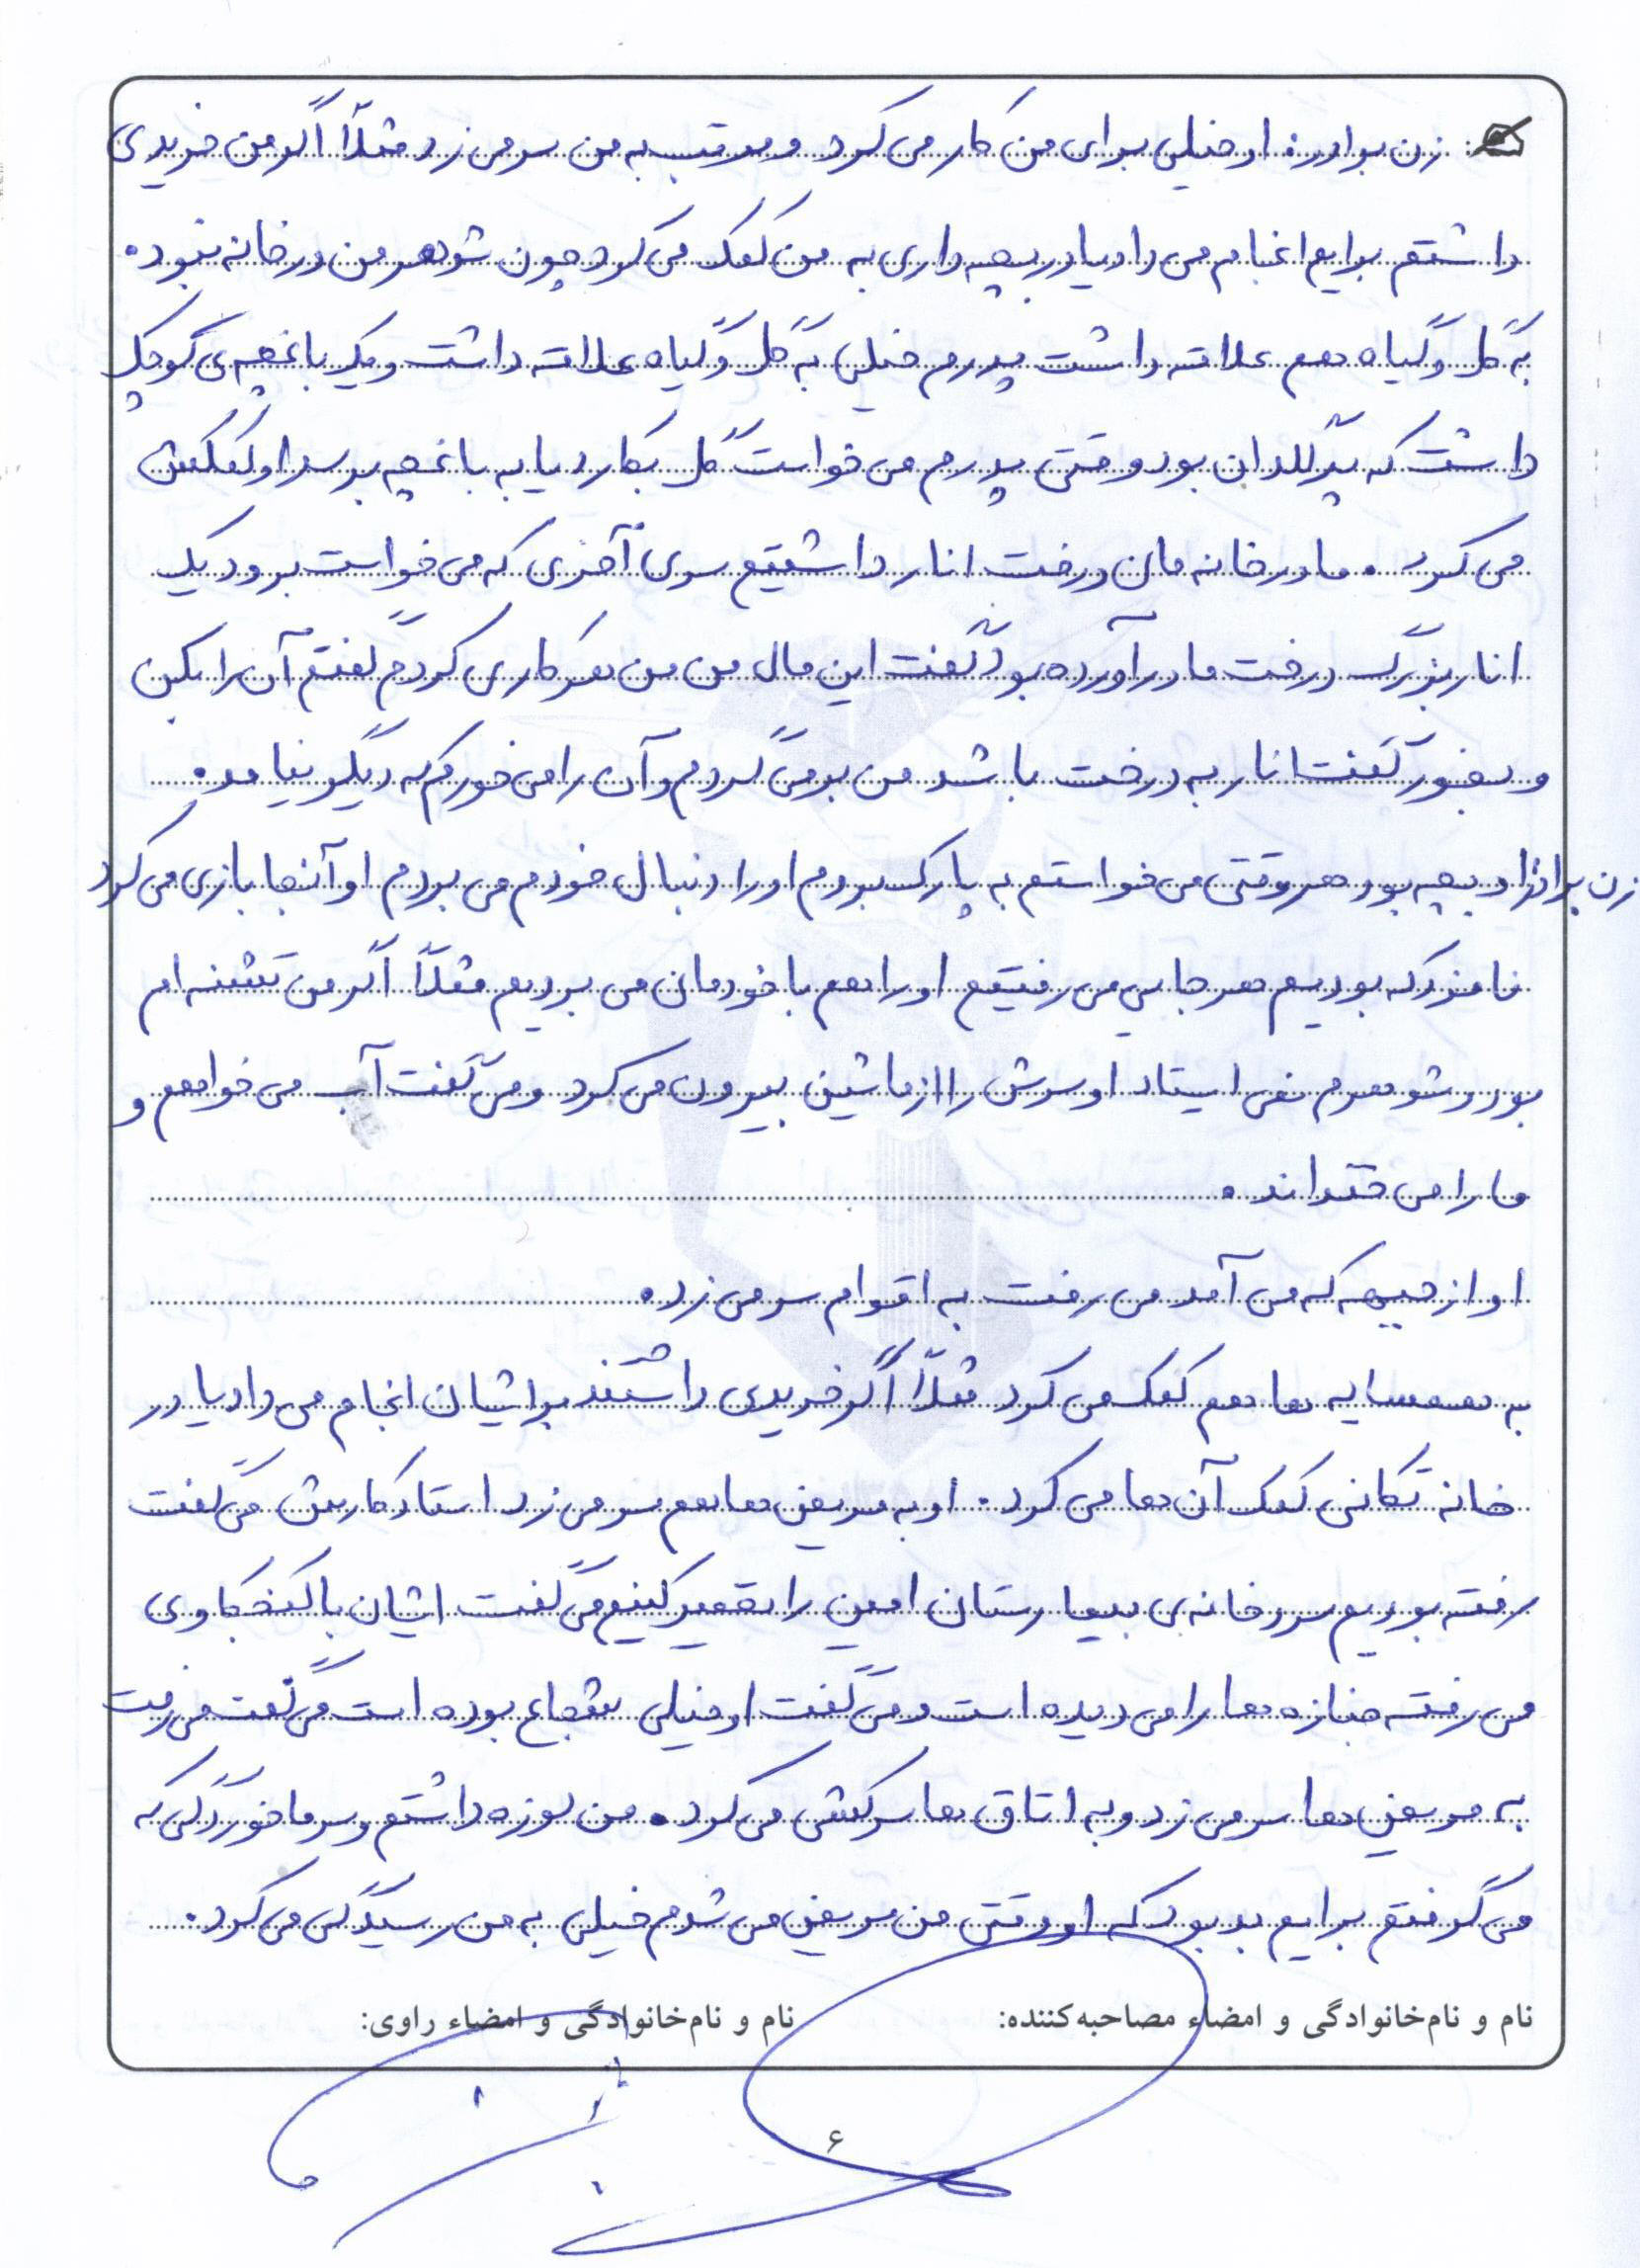 زن برادر: او خیلی برای من کار می کرد و مرتب به من سر می زد مثلاً اگر من خریدی
داشتم برایم انجام می داد یا در بچه داری به من کمک می کرد چون شوهر من در خانه نبود.
به گل و گیاه هم علاقه داشت پدرم خیلی به گل و گیاه علاقه داشت و یک باغچه ی کوچک
داشت که پر گلدان بود وقتی پدرم می خواست گل بکارد یا به باغچه برسد او کمکش
می کرد. ما در خانه مان درخت انار داشتیم سری آخری که می خواست برود یک
انار بزرگ درخت ما در آورده بود گفت این مال من من هر کاری کردم گفتم آن را بکن
و بخور گفت انار به درخت باشد من برمی گردم و آن را می خورم که دیگر نیامد.
زن برادر: او بچه بود هر وقتی می خواستم به پارک بروم او را دنبال خودم می بردم او آنجا بازی می کرد
نامزد که بودیم هر جایی می رفتیم او را هم با خودمان می بردیم مثلاً اگر من تشنه ام
بود و شوهرم نمی ایستاد او سرش را از ماشین بیرون می کرد و می گفت آب می خواهم و
ما را می خنداند.
او از جبهه که می آمد می رفت به اقوام سر می زد.
به همسایه ها هم کمک می کرد مثلاً اگر خریدی داشتند براشان انجام می داد یا در
خانه تکانی کمک آن ها می کرد. او به مریض ها هم سر می زد استاد کارش می گفت
رفته بودیم سردخانه ی بیمارستان امین را تعمیر کنیم می گفت ایشان با کنجکاوی
می رفته جنازه ها را می دیده است و می گفت او خیلی شجاع بوده است می گفت می رفت
به مریض ها سر می زد و به اتاق ها سرکشی می کرد. من لوزه داشتم و سرماخوردگی که
می گرفتم برایم بد بود که او وقتی من مریض می شدم خیلی به من رسیدگی می کرد.
نام و نام‌خانوادگی و امضاء مصاحبه‌کننده: نام و نام‌خانوادگی و امضاء راوی:
۶